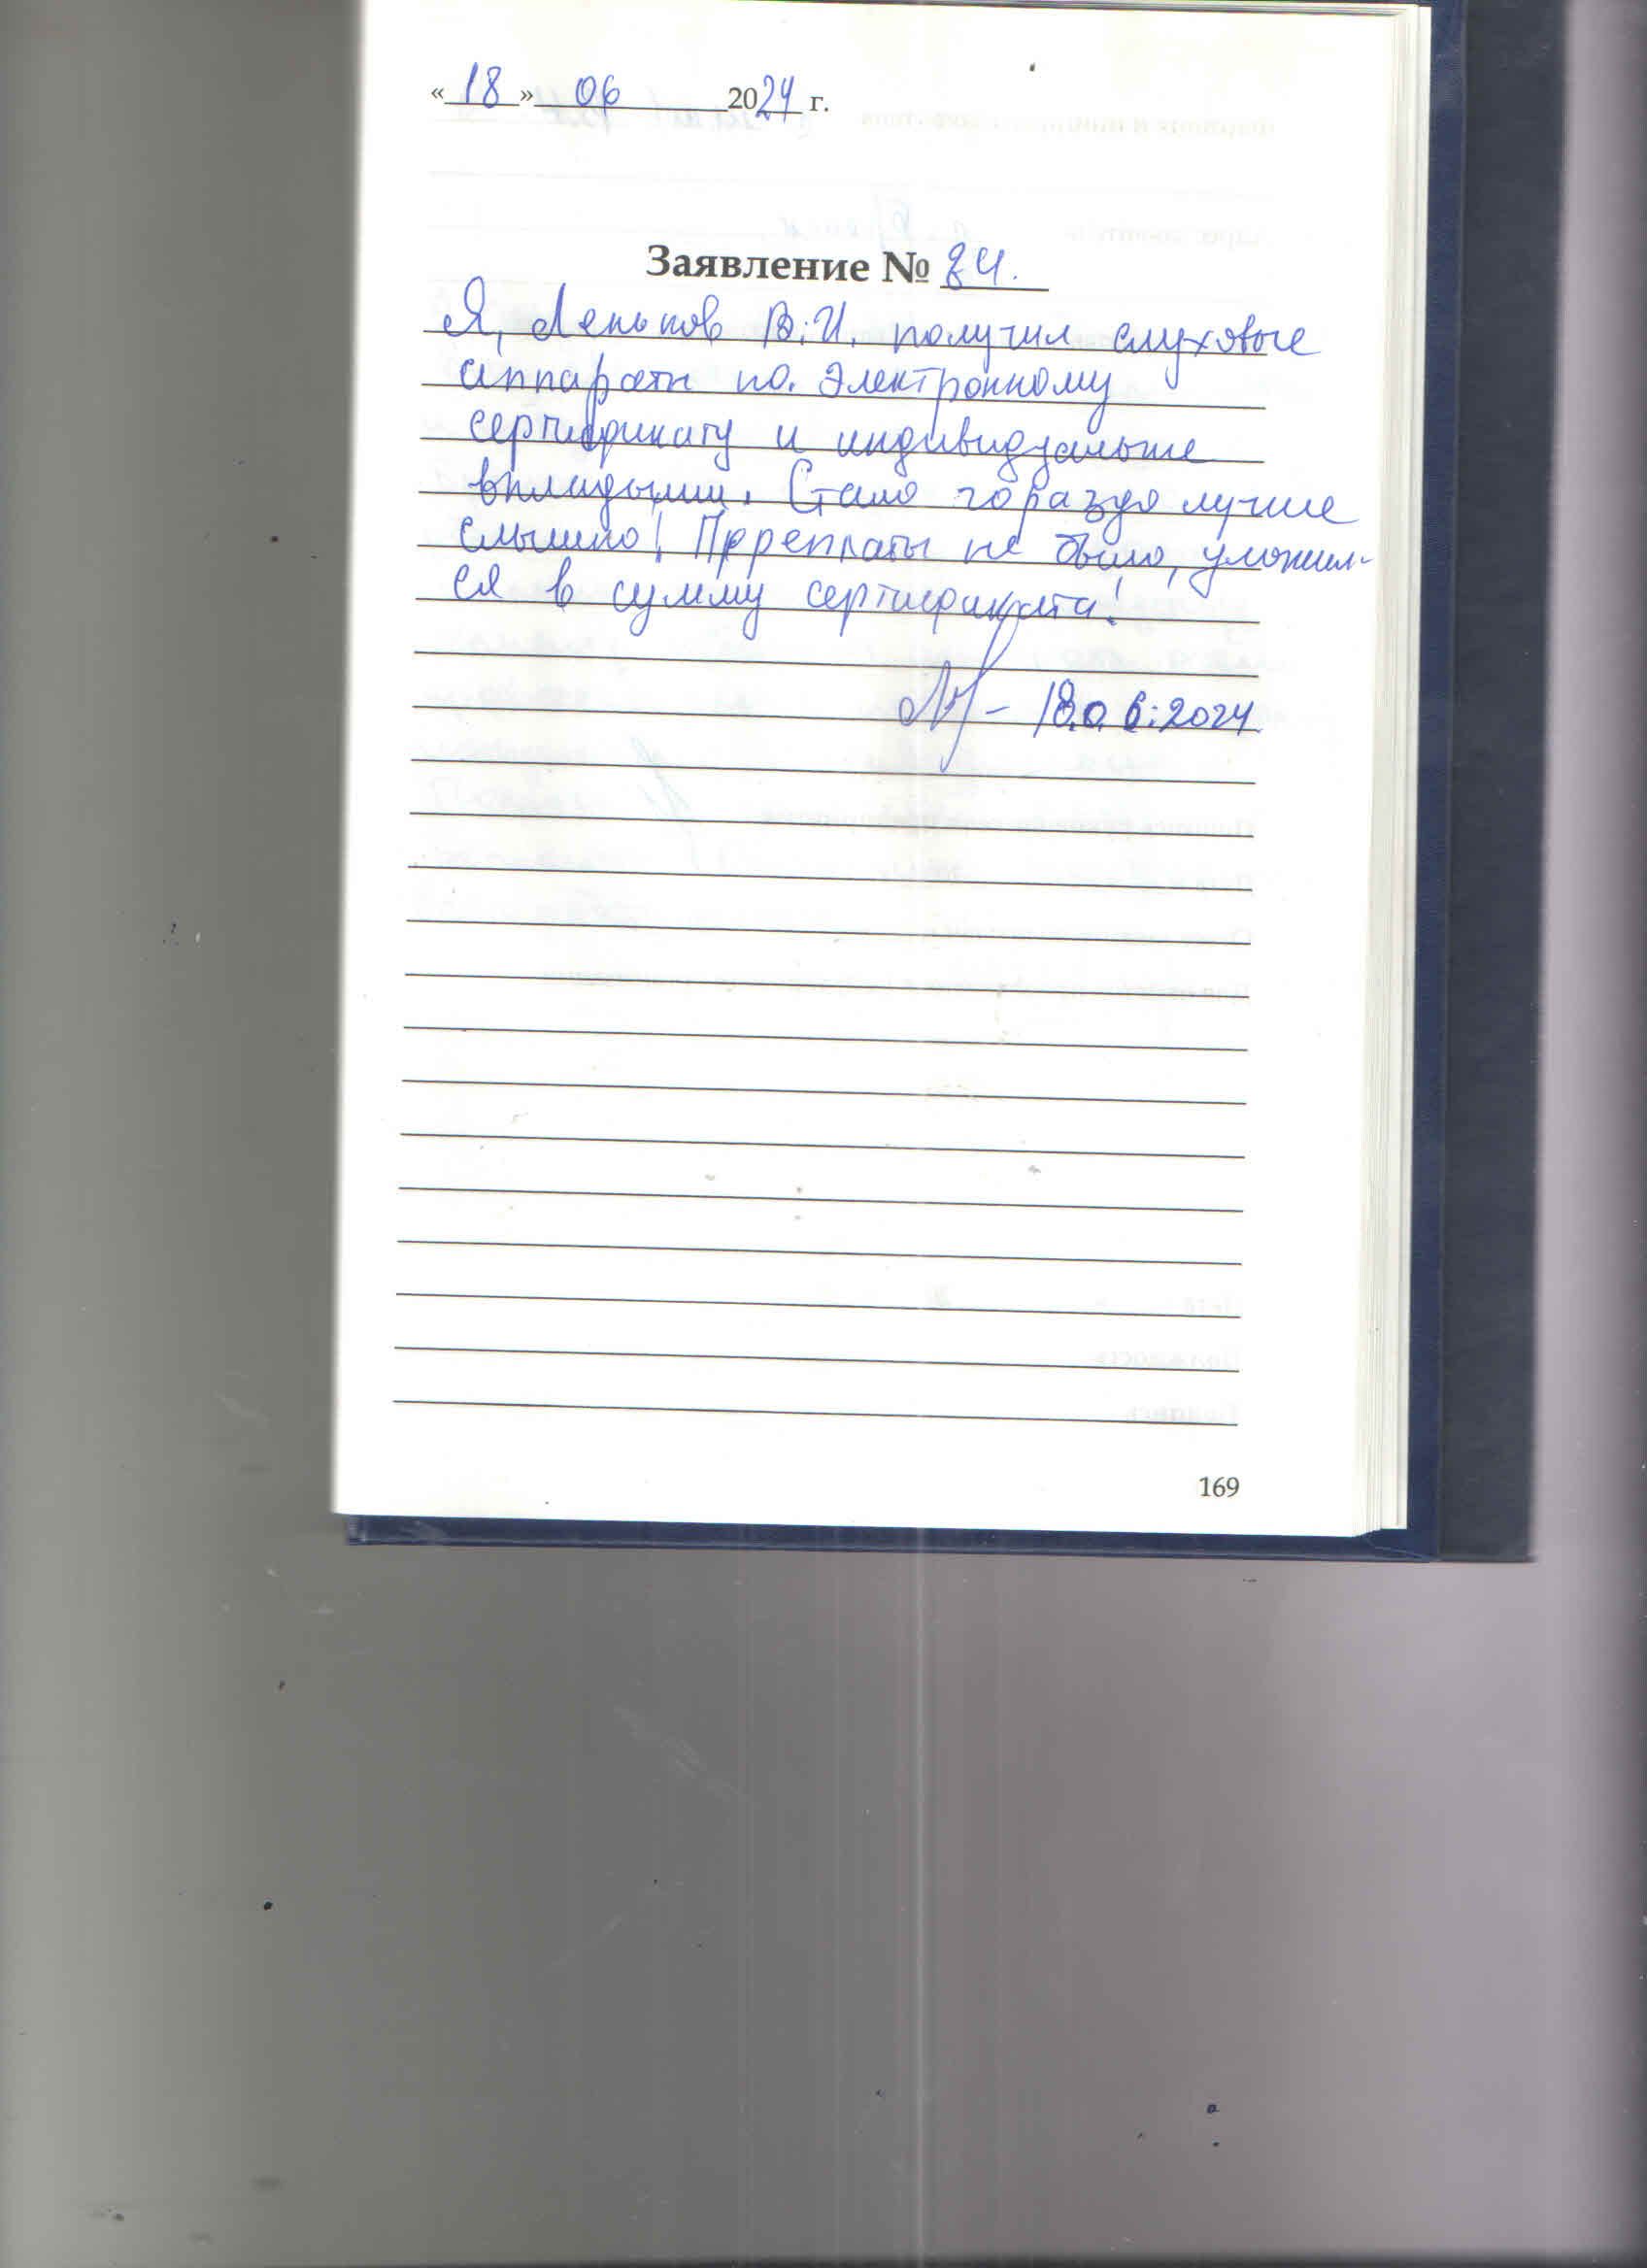 «18» 06 2024 г.
Заявление № 84.
Я, Леньков В.И. получил слуховые
аппараты по. Электронному
сертификату и индивидуальные
вкладыши. Стало гораздо лучше
слышно! Перреплаты не было, уложил-
ся в сумму сертификата!
- 18.06.2024
169